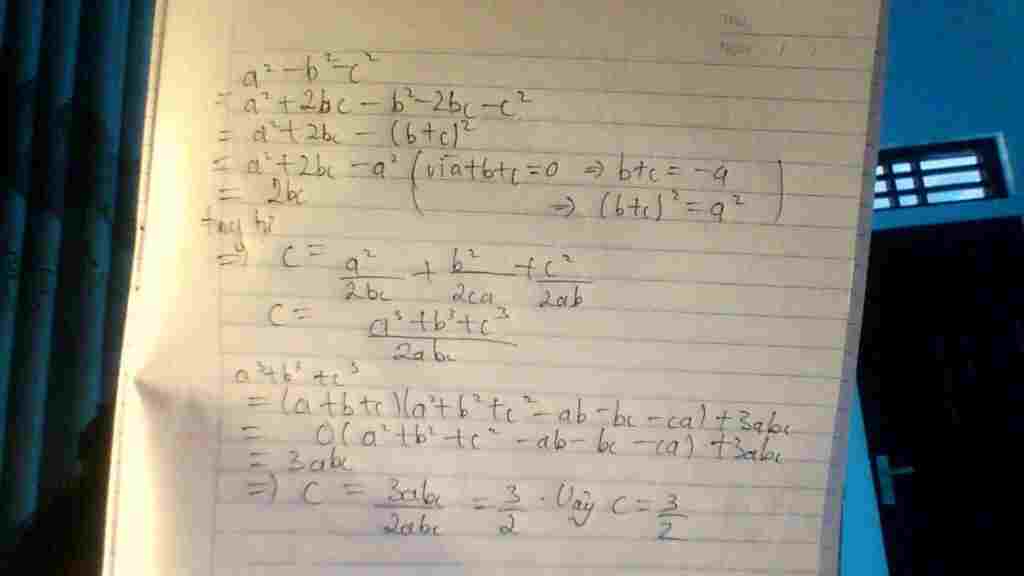 a² - b² - c²
= a² + 2bc - b² - 2bc - c²
= a² + 2bc - (b+c)²
= a² + 2bc - a² (vì a+b+c = 0 ⇒ b+c = -a
= 2bc ⇒ (b+c)² = a²)
⇒ C = a²/2bc + b²/2ca + c²/2ab
C = a³+b³+c³/2abc
a³+b³+c³
= (a+b+c)(a²+b²+c² - ab - bc - ca) + 3abc
= 0(a²+b²+c² - ab - bc - ca) + 3abc
= 3abc
⇒ C = 3abc/2abc = 3/2 . Vậy C = 3/2